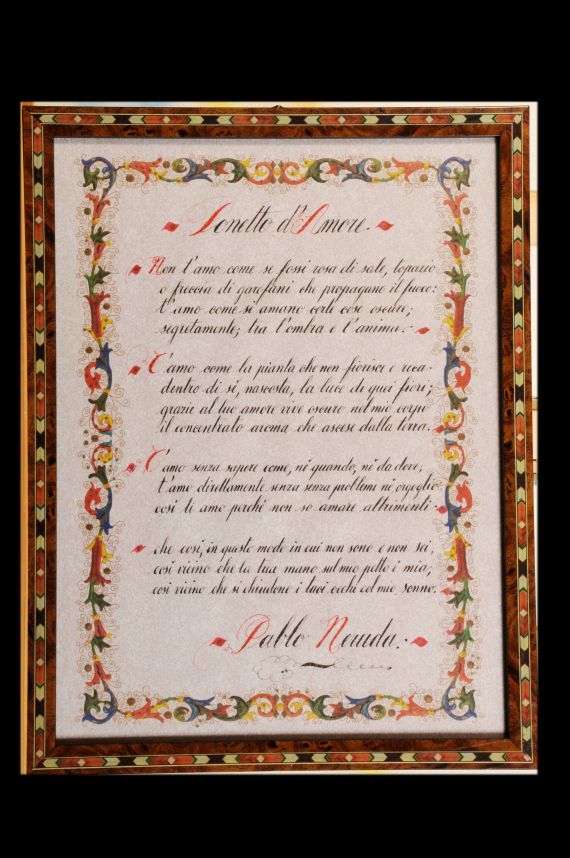 Sonetto d'Amore.
Non t'amo come se fossi rosa di sale, topazio
o freccia di garofani che propagano il fuoco:
t'amo come si amano certe cose oscure,
segretamente, tra l'ombra e l'anima.
T'amo come la pianta che non fiorisce e reca
dentro di sé, nascosta, la luce di quei fiori;
grazie al tuo amore vive oscuro nel mio corpo
il concentrato aroma che ascese dalla terra.
T'amo senza sapere come, né quando, né da dove,
t'amo direttamente senza senza problemi né orgoglio
così ti amo perché non so amare altrimenti
che così, in questo modo in cui non sono e non sei,
così vicino che la tua mano sul mio petto è mia,
così vicino che si chiudono i tuoi occhi col mio sonno.
Pablo Neruda.